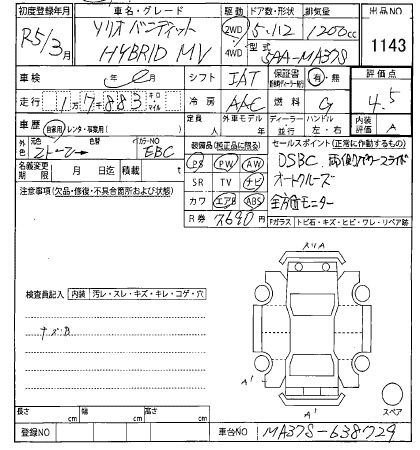 初度登録年月 車名・グレード 駆動 ドア数・形状 排気量 出品NO
R5/3月 ソリオ バンディット HYBRID MV 2WD /4WD 5.112 1200cc 1143
型式 5AA-MA37S
車検 年 月 シフト IAT 保証書 有・無 評価点
走行 1万7,883 キロ マイル 冷房 AAC 燃料 G 4.5
車歴 自家用・レンタ・事業用( ) 定員 人 外車モデル 年 ディーラー 並行 ハンドル 左・右 内装評価 A
外色 元色 色替 カラーNO EBC
名義変更期限 月 日迄 積載 t
装備品(純正品に限る) セールスポイント(正常に作動するもの)
PS PW AW DSBC 両側パワースライド
SR TV ナビ オートクルーズ
カワ エアB ABS 全方位モニター
R券 7690 円 Fガラス トビ石・キズ・ヒビ・ワレ・リペア跡
注意事項(欠品・修復・不具合箇所および状態)
検査員記入 内装 汚レ・スレ・キズ・キレ・コゲ・穴
ナズB
A'
A'
スペア
長さ cm 幅 cm 高さ cm
登録NO 車台NO MA37S-638729